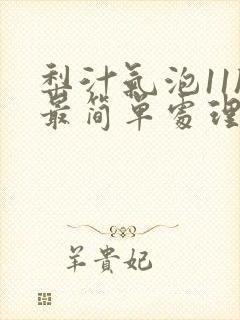 梨汁氣泡11
最简單處理
羊貴妃